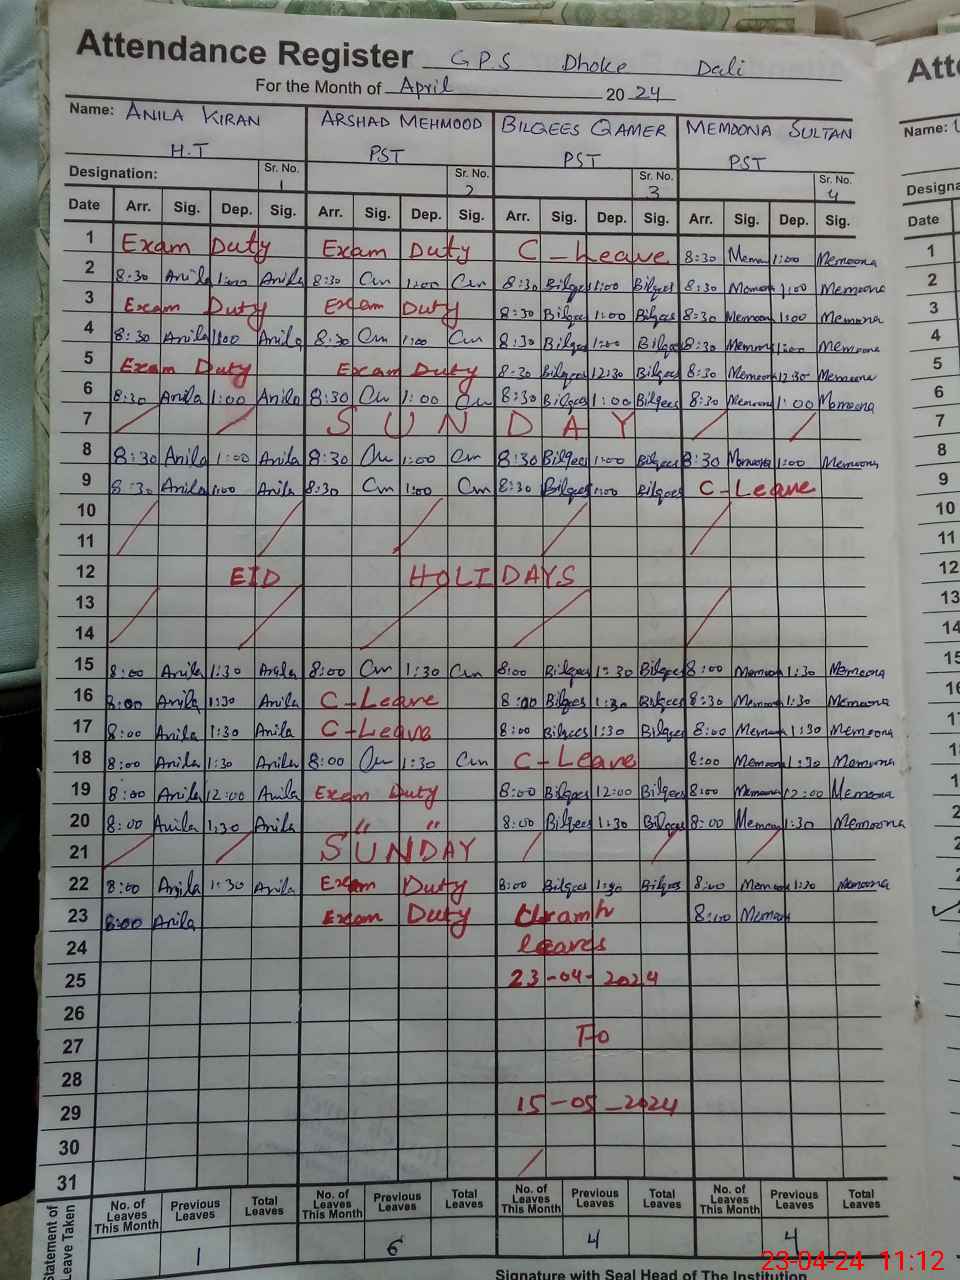 Attendance Register G.P.S Dhoke Dali
For the Month of April 2024
Name: ANILA KIRAN ARSHAD MEHMOOD BILQEES QAMER MEMOONA SULTAN
H.T PST PST PST
Designation: Sr. No. 1 Sr. No. 2 Sr. No. 3 Sr. No. 4
Date Arr. Sig. Dep. Sig. Arr. Sig. Dep. Sig. Arr. Sig. Dep. Sig. Arr. Sig. Dep. Sig.
1 Exam Duty Exam Duty C-Leave 8:30 Memoona 1:00 Memoona
2 8:30 Anila 1:00 Anila 8:30 1:00 8:30 Bilqees 1:00 Bilqees 8:30 Memoona 1:00 Memoona
3 Exam Duty Exam Duty 8:30 Bilqees 1:00 Bilqees 8:30 Memoona 1:00 Memoona
4 8:30 Anila 1:00 Anila 8:30 1:00 8:30 Bilqees 1:00 Bilqees 8:30 Memoona 1:00 Memoona
5 Exam Duty Exam Duty 8:30 Bilqees 12:30 Bilqees 8:30 Memoona 12:30 Memoona
6 8:30 Anila 1:00 Anila 8:30 1:00 8:30 Bilqees 1:00 Bilqees 8:30 Memoona 1:00 Memoona
7 SUNDAY
8 8:30 Anila 1:00 Anila 8:30 1:00 8:30 Bilqees 1:00 Bilqees 8:30 Memoona 1:00 Memoona
9 8:30 Anila 1:00 Anila 8:30 1:00 8:30 Bilqees 1:00 Bilqees C-Leave
10
11
12 EID HOLIDAYS
13
14
15 8:00 Anila 1:30 Anila 8:00 1:30 8:00 Bilqees 1:30 Bilqees 8:00 Memoona 1:30 Memoona
16 8:00 Anila 1:30 Anila C-Leave 8:00 Bilqees 1:30 Bilqees 8:30 Memoona 1:30 Memoona
17 8:00 Anila 1:30 Anila C-Leave 8:00 Bilqees 1:30 Bilqees 8:00 Memoona 1:30 Memoona
18 8:00 Anila 1:30 Anila 8:00 1:30 C-Leave 8:00 Memoona 1:30 Memoona
19 8:00 Anila 12:00 Anila Exam Duty 8:00 Bilqees 12:00 Bilqees 8:00 Memoona 12:00 Memoona
20 8:00 Anila 1:30 Anila " " 8:00 Bilqees 1:30 Bilqees 8:00 Memoona 1:30 Memoona
21 SUNDAY
22 8:00 Anila 1:30 Anila Exam Duty 8:00 Bilqees 1:30 Bilqees 8:00 Memoona 1:30 Memoona
23 8:00 Anila Exam Duty 8:00 Memoona
24 leaves
25 23-04-2024
26
27 To
28
29 15-05-2024
30
31
Statement of Leave Taken No. of Leaves This Month Previous Leaves Total Leaves No. of Leaves This Month Previous Leaves Total Leaves No. of Leaves This Month Previous Leaves Total Leaves No. of Leaves This Month Previous Leaves Total Leaves
1 6 4 4
Signature with Seal Head of The Institution
23-04-24 11:12
Name:
1
2
3
4
5
6
7
8
9
10
11
12
13
14